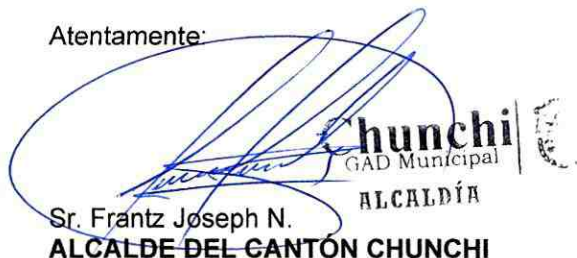 Atentamente:
Chunchi
GAD Municipal
ALCALDÍA
Sr. Frantz Joseph N.
ALCALDE DEL CANTÓN CHUNCHI